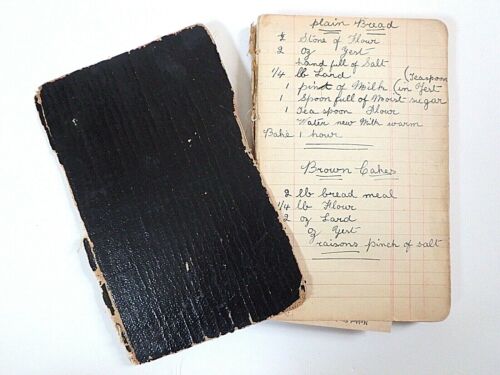 plain Bread
½ Stone of Flour
2 oz Yest
hand full of Salt
1/4 lb Lard
(Teaspoon
1 pinct of Milk (in Yest
1 Spoon full of Moist sugar
1 Tea spoon Flour
Water new Milk warm
Bake 1 hour
Brown Cakes
2 lb bread meal
1/4 lb Flour
2 oz Lard
oz Yest
raisons pinch of salt